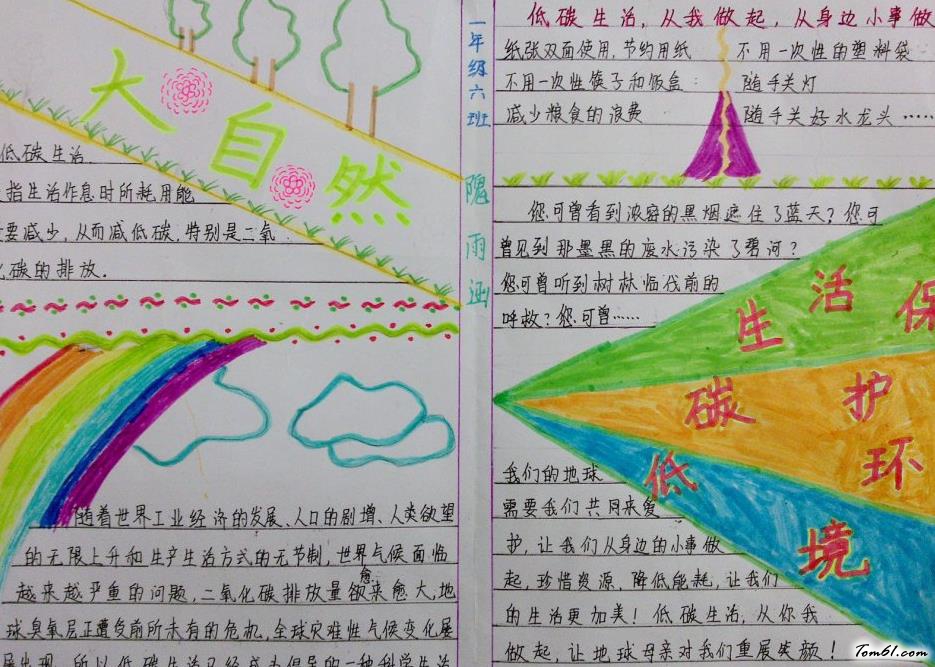 大自然
低碳生活
指生活作息时所耗用能
要减少,从而减低碳,特别是二氧
化碳的排放.
随着世界工业经济的发展、人口的剧增、人类欲望
的无限上升和生产生活方式的无节制,世界气候面临
越来越严重的问题,二氧化碳排放量愈来愈大,地
球臭氧层正遭受前所未有的危机,全球灾难性气候变化屡
屡出现,所以低碳生活已经成为倡导的一种科学生活
一年级六班
隗雨涵
低碳生活,从我做起,从身边小事做
纸张双面使用,节约用纸 不用一次性的塑料袋
不用一次性筷子和饭盒: 随手关灯
减少粮食的浪费 随手关好水龙头……
您可曾看到浓密的黑烟遮住了蓝天?您可
曾见到那墨黑的废水污染了碧河?
您可曾听到树林临伐前的
呼救?您可曾……
低碳生活
保护环境
我们的地球
需要我们共同来爱
护,让我们从身边的小事做
起,珍惜资源、降低能耗,让我们
的生活更加美!低碳生活,从你我
做起,让地球母亲对我们重展笑颜!
Tom61.com